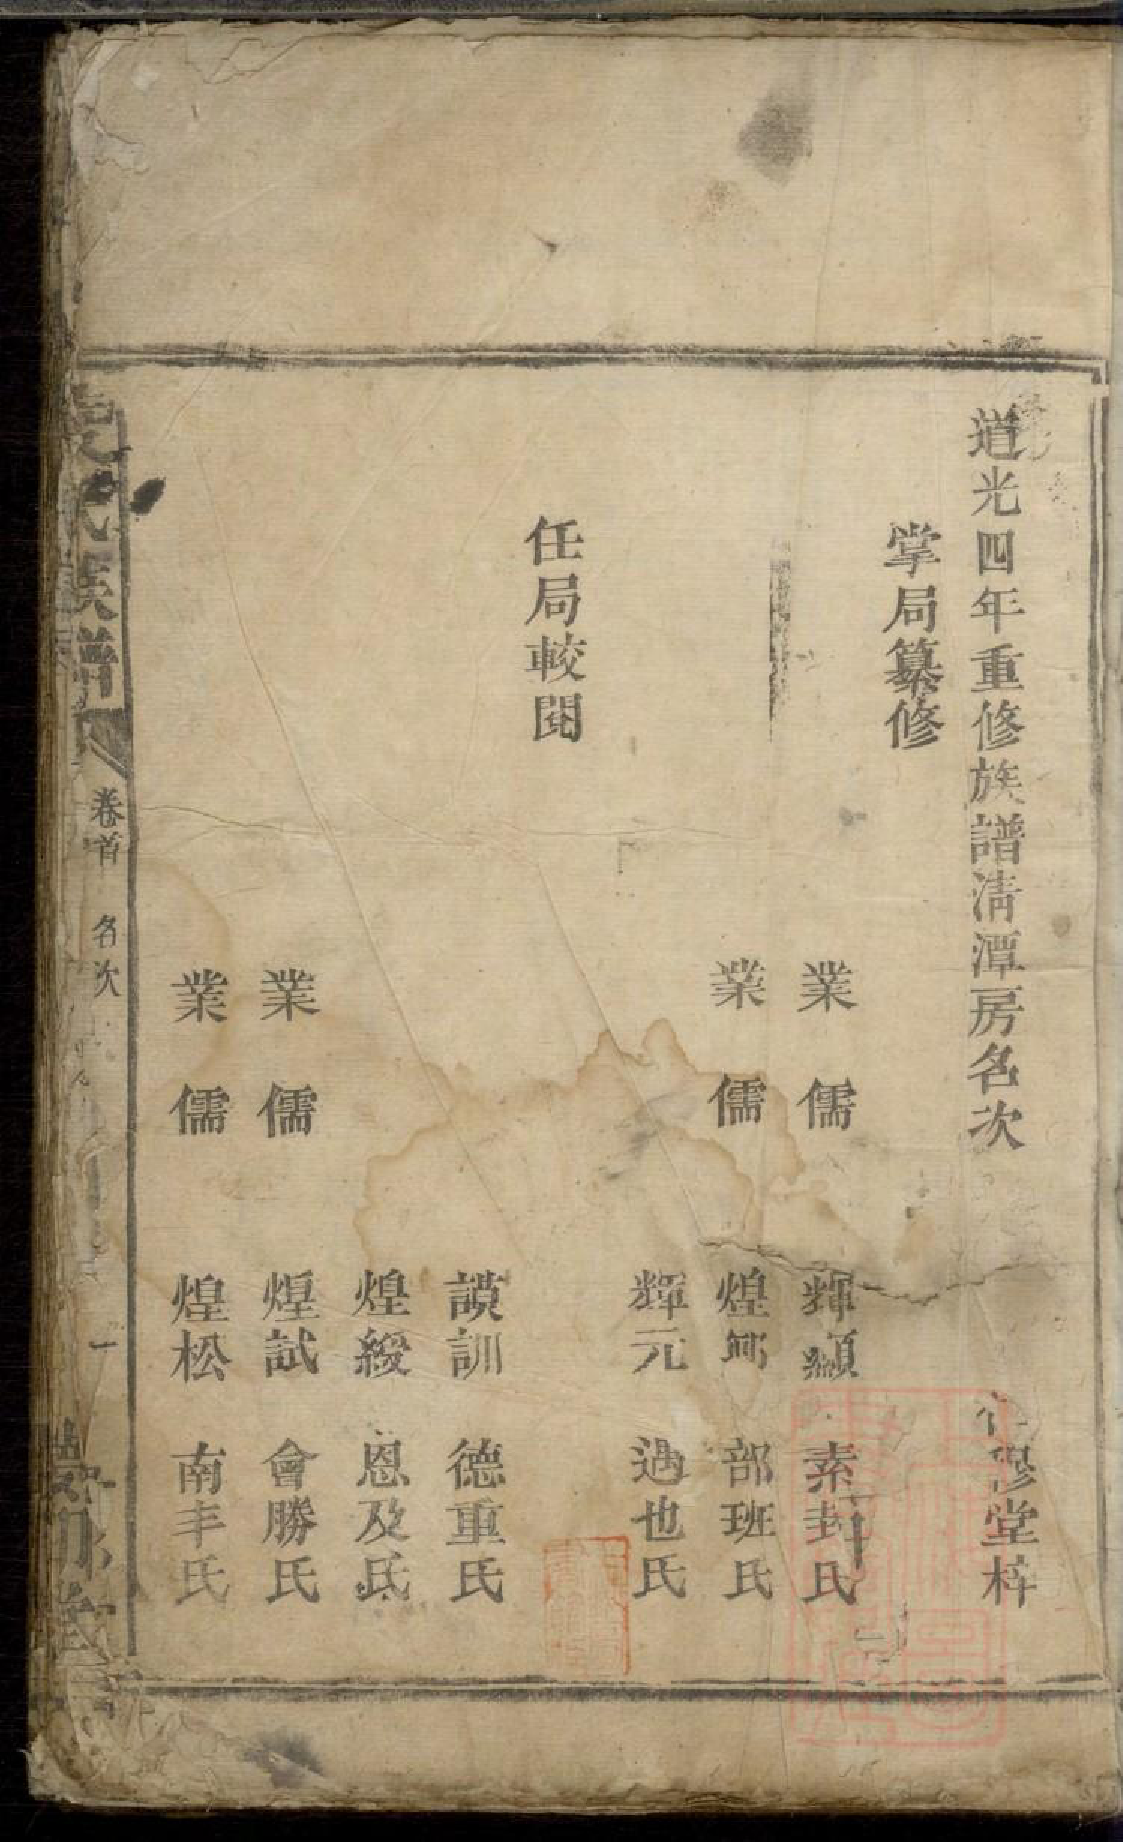 道光四年重修族譜清潭房名次
穆堂梓
掌局纂修
業儒 輝顯 素封氏
業儒 煌 部班氏
輝元 過也氏
任局較閱
謨訓 德重氏
煌綬 恩及氏
業儒 煌試 會勝氏
業儒 煌松 南丰氏
氏族譜
卷首 名次
一